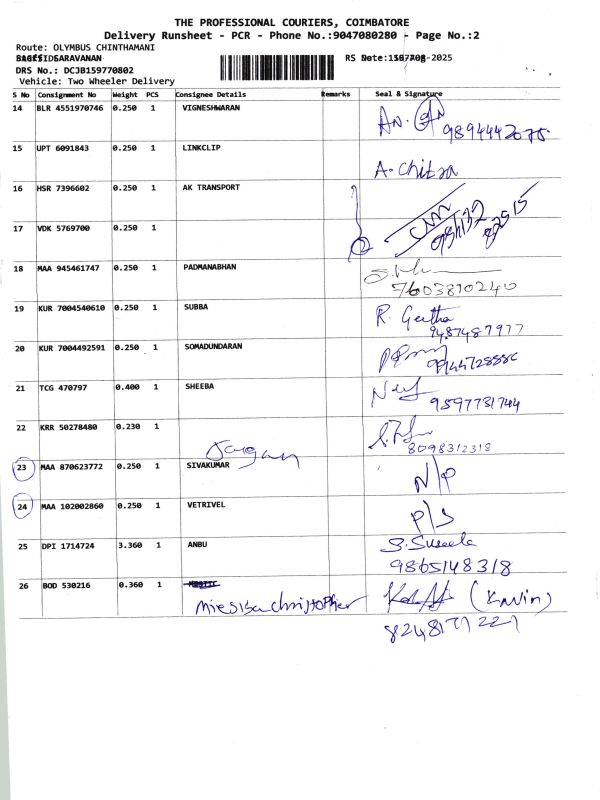 THE PROFESSIONAL COURIERS, COIMBATORE
Delivery Runsheet - PCR - Phone No.:9047080280 - Page No.:2
Route: OLYMBUS CHINTHAMANI
SARAVANAN
DRS No.: DCJB159770802
Vehicle: Two Wheeler Delivery
S No Consignment No Weight PCS Consignee Details Remarks Seal & Signature
14 BLR 4551970746 0.250 1 VIGNESHWARAN An.
9894442075
15 UPT 6091843 0.250 1 LINKCLIP A. Chitra
16 HSR 7396602 0.250 1 AK TRANSPORT
17 VDK 5769700 0.250 1
18 MAA 945461747 0.250 1 PADMANABHAN
7603810240
19 KUR 7004540610 0.250 1 SUBBA R. Geetha
9487487977
20 KUR 7004492591 0.250 1 SOMADUNDARAN
21 TCG 470797 0.400 1 SHEEBA
9597731744
22 KRR 50278480 0.230 1
8098312318
Jagan
23 MAA 870623772 0.250 1 SIVAKUMAR N/P
24 MAA 102002860 0.250 1 VETRIVEL P/S
25 DPI 1714724 3.360 1 ANBU S. Suseela
9865148318
26 BOD 530216 0.360 1 (Kavin)
8248171221